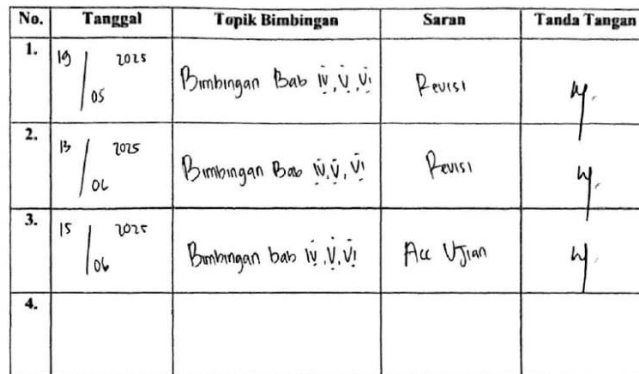 No. Tanggal Topik Bimbingan Saran Tanda Tangan
1. 19/05 2025 Bimbingan Bab IV, V, VI Revisi
2. 13/06 2025 Bimbingan Bab IV, V, VI Revisi
3. 15/06 2025 Bimbingan bab IV, V, VI Acc Ujian
4.